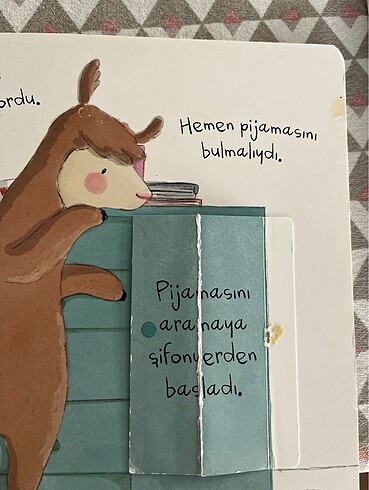 Hemen pijamasını
bulmalıydı.
Pijamasını
aramaya
şifonyerden
başladı.